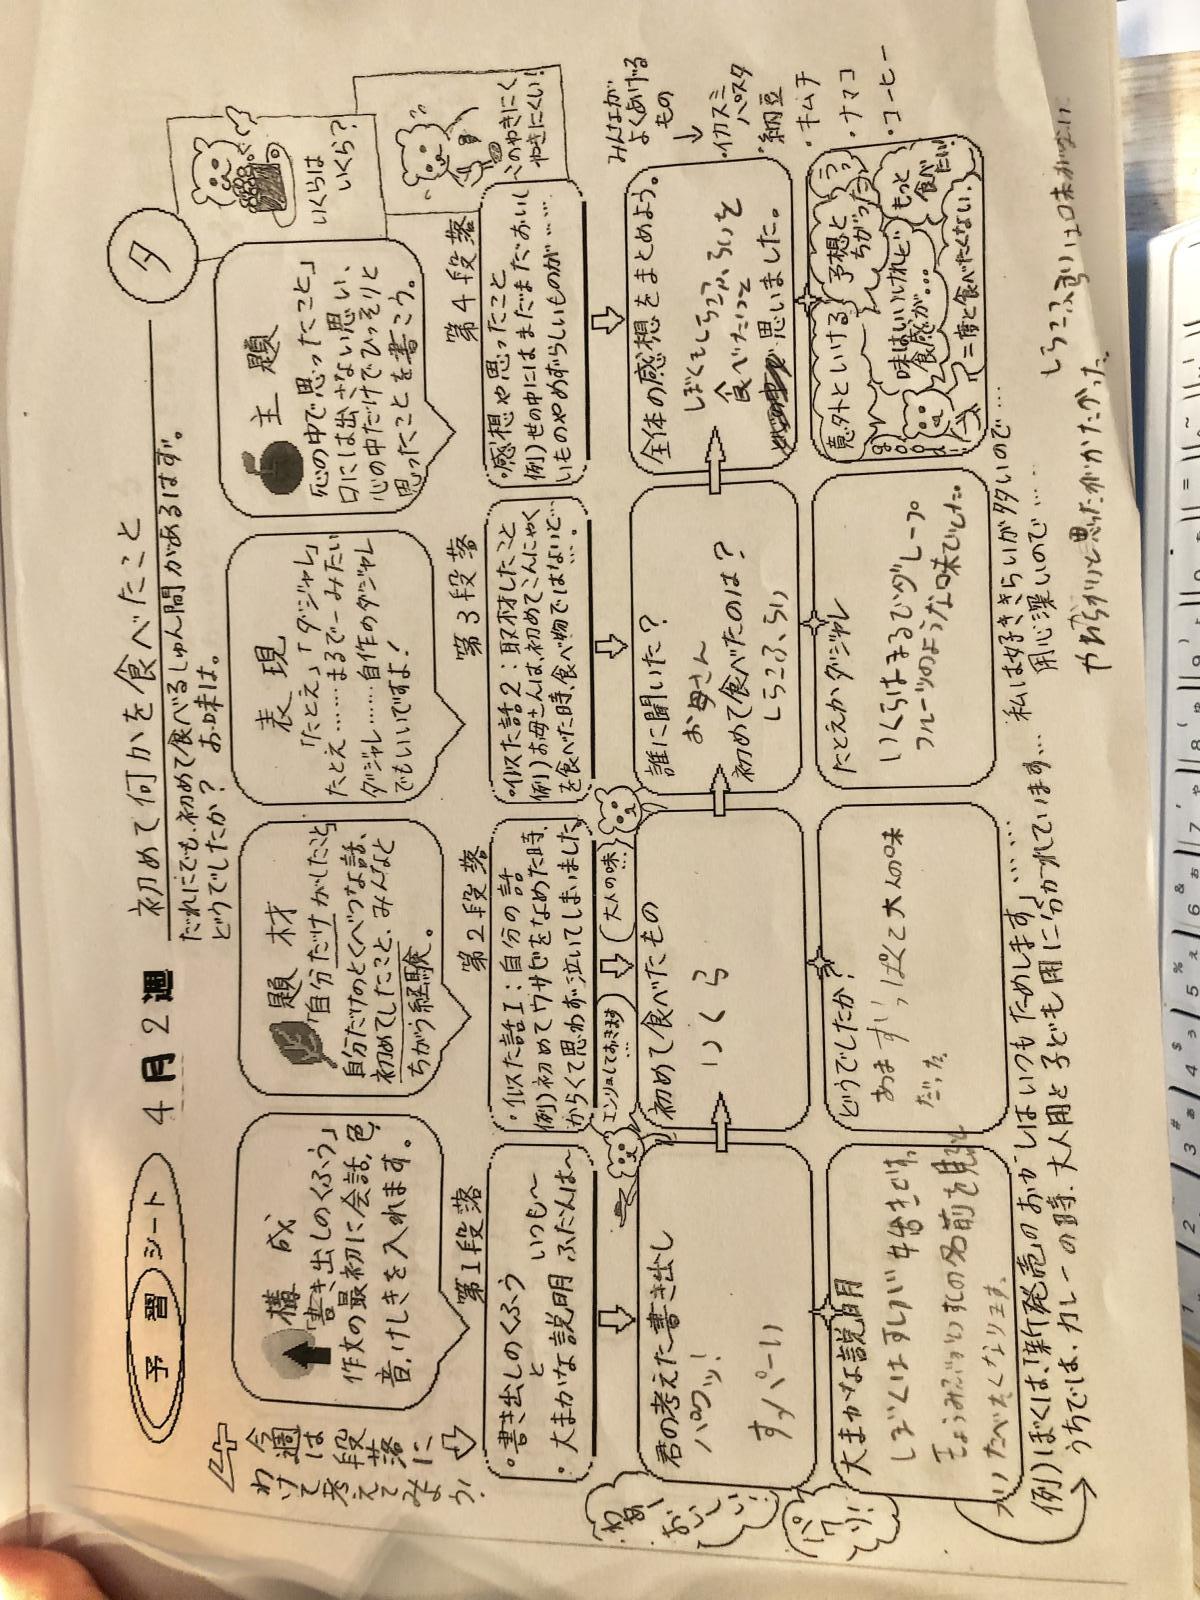 予習シート
4月2週
初めて何かを食べたこと
夕
だれにでも、初めて食べるしゅん間があるはず。
どうでしたか? お味は。
いくらは
いくら?
このやきにく
やきにくい!
今週は段落に
わけて考えてみよう!
構成
「書き出しのくふう」
作文の最初に会話、色、
音、けしきを入れます。
題材
「自分だけがしたこと」
自分だけのとくべつな話、
初めてしたこと、みんなと
ちがう経験。
表現
「たとえ」「ダジャレ」
たとえ……まるでーみたい
ダジャレ……自作のダジャレ
でもいいですよ!
主題
「心の中で思ったこと」
口には出さない思い、
心の中だけでひっそりと
思ったことを書こう。
第1段落
・書き出しのくふう
と いつも〜
・大まかな説明 ふだんは〜
第2段落
・似た話1:自分の話
例)初めてワサビをなめた時、
からくて思わず泣いてしまいました
第3段落
・似た話2:取材したこと
例)お母さんは、初めてこんにゃく
を食べた時、食べ物ではないと…
第4段落
・感想や思ったこと
例)世の中にはまだまだおいし
いものやめずらしいものが……
エンリョしておきます…
大人の味…
わあー
おいしい!
パクリ!
君の考えた書き出し
パクッ!
すっパーい
初めて食べたもの
いくら
誰に聞いた?
お母さん
初めて食べたのは?
しらこふらい
全体の感想をまとめよう。
ぼくもしらこふらいを
食べたいと
思いました。
みんなが
よくあげる
もの
・イカスミ
パスタ
・納豆
・キムチ
・ナマコ
・コーヒー
大まかな説明
ぼくはすしが好きです。
たべたくなります。
どうでしたか?
あますっぱくて大人の味
だった。
たとえかダジャレ
いくらはまるでグレープ
フルーツのような味でした。
意外といける
予想と
ちがった
味はいいけれど
食感が…
もっと
食べたい!
二度と食べたくない
例)ぼくは、「新発売」のおかしはいつもためします……
うちでは、カレーの時、大人用と子ども用に分かれています…
私は好ききらいが多いので…
用心深いので…
しらこふらいは味がない